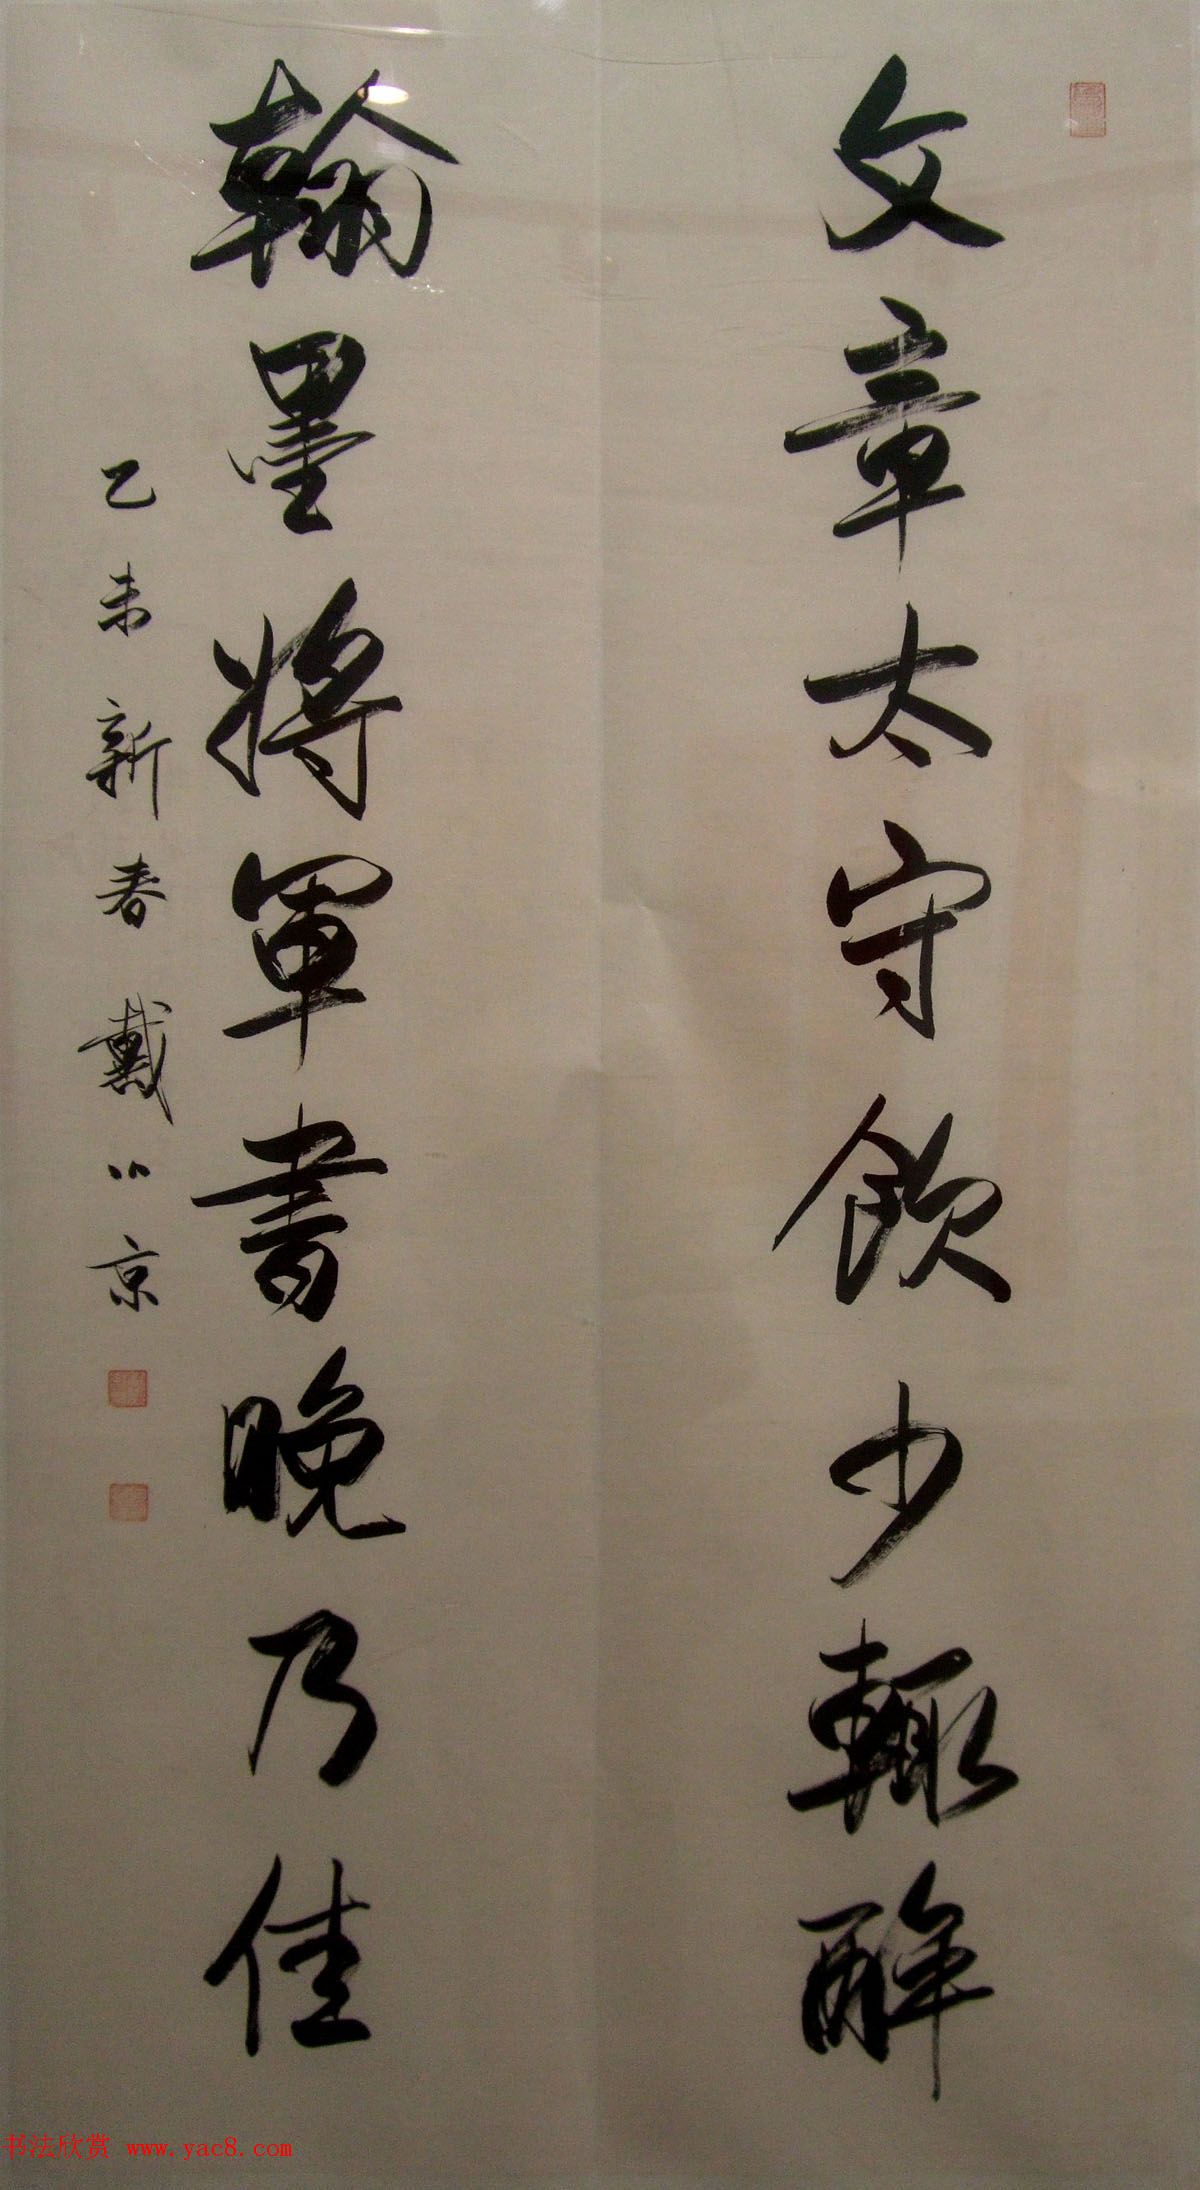 文章太守飲少輒醉
翰墨將軍書晚乃佳
乙未新春戴公京
书法欣赏 www.yac8.com